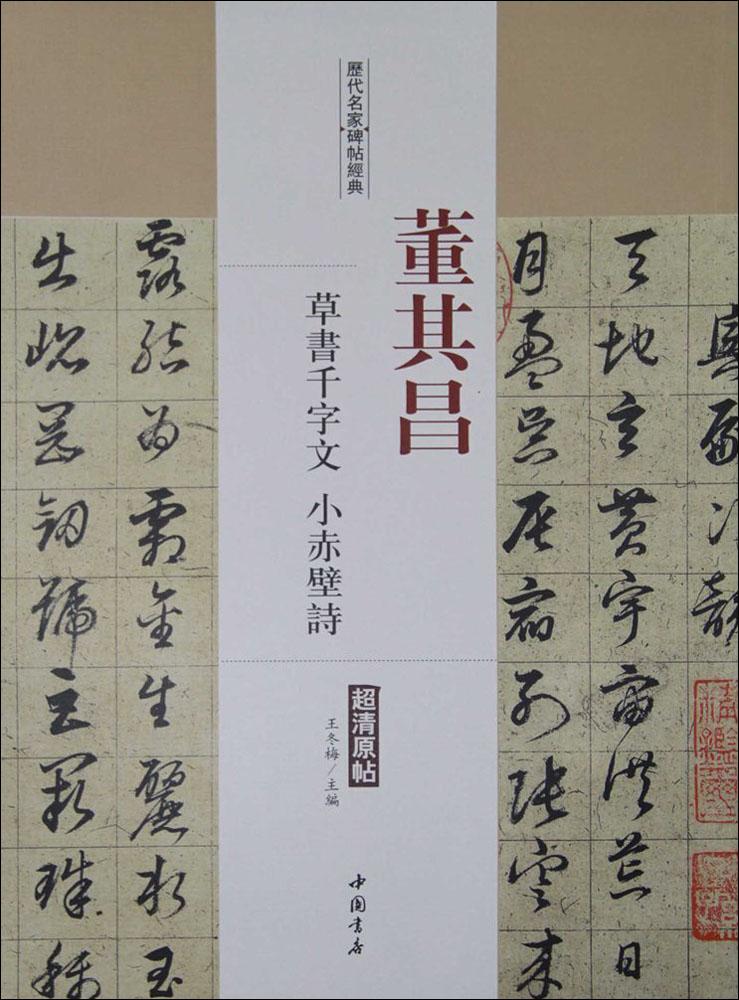 歷代名家碑帖經典
董其昌
草書千字文 小赤壁詩
超清原帖
王冬梅/主編
中國書店
天地玄黃宇宙洪荒日
月盈昃辰宿列張寒來
露結為霜金生麗水玉
出崐岡劍號巨闕珠稱